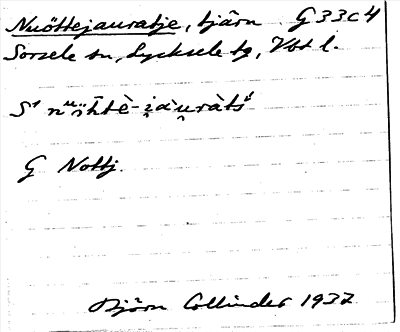 Nuöttejauratje, tjärn G 33 c 4
Sorsele sn, Lycksele tg, Vbt l.
G Nottj.
Björn Collinder 1932